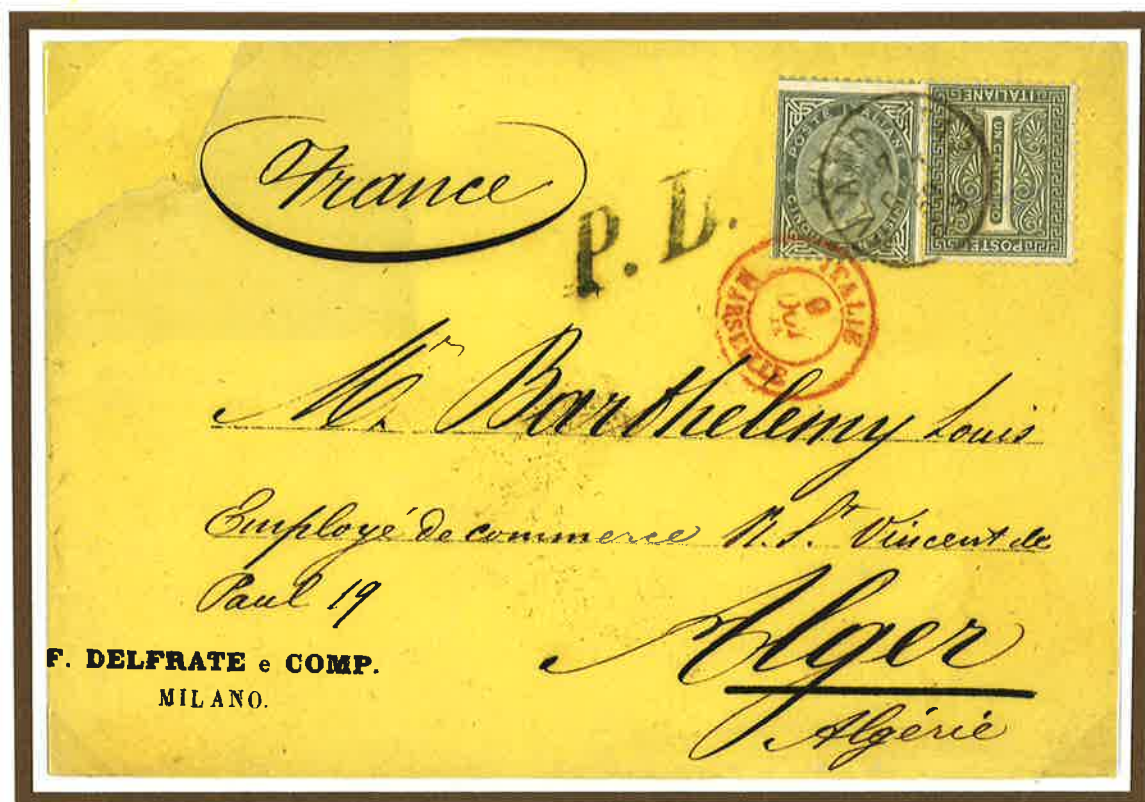 France
P. D.
POSTE ITALIANE
POSTE ITALIANE
UN CENTESIMO
ITALIE
9
MARSEILLE
Mr. Barthelemy Louis
Employé de commerce R. St Vincent de
Paul 19
F. DELFRATE e COMP.
MILANO.
Alger
Algérie